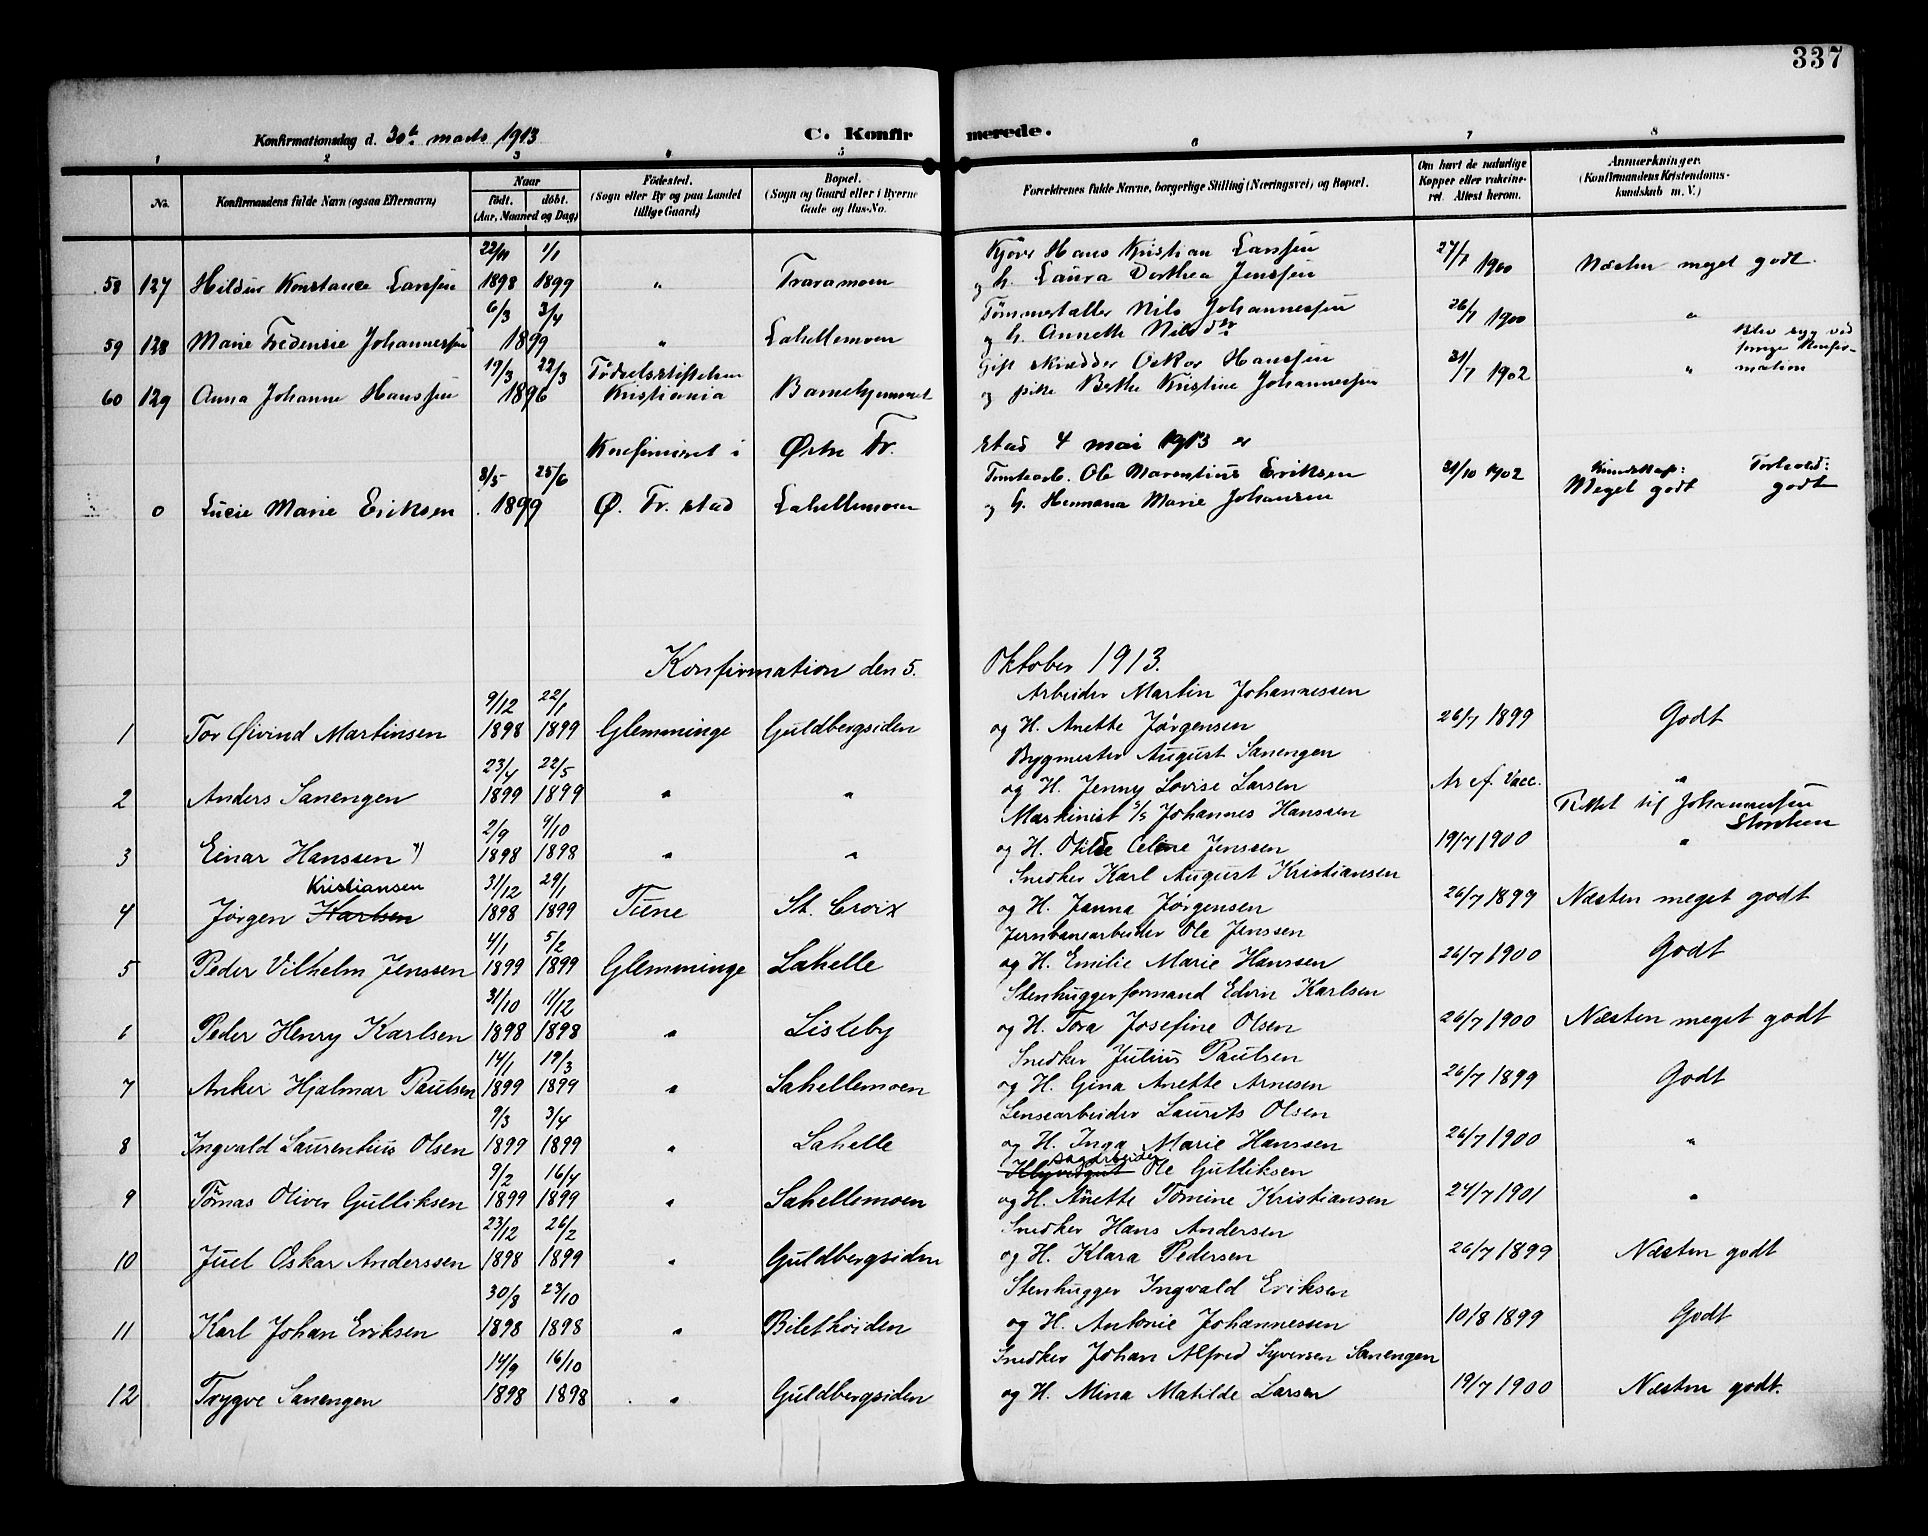 337
Konfirmationsdag d. 30te marts 1913
C. Konfirmerede.
1 2 3 4 5 6 7 8
No.
Konfirmandens fulde Navn (ogsaa Efternavn)
Naar
født. døbt.
(Aar, Maaned og Dag)
Fødested.
(Sogn eller By og paa Landet
tillige Gaard)
Bopæl.
(Sogn og Gaard eller i Byerne
Gade og Hus-No.
Forældrenes fulde Navne, borgerlige Stilling (Næringsvei) og Bopæl.
Om havt de naturlige
Kopper eller vaksine-
ret. Attest herom.
Anmærkninger.
(Konfirmandens Kristendoms-
kundskab m. V.)
22/11 1/1 Hans Kristian Larssen 27/7
58 127 Hildur Konstance Larssen 1898 1899 " Traramoen og h. Laura Dorthea Jenssen 1900 Næsten meget godt.
6/3 3/4 Tømmertæller Nils Johannessen 26/7
59 128 Marie Fredensie Johannessen 1899 " Lahellemoen og h. Annette Nilsdtr 1900 " Blev syg ved
forrige Konfir-
mation
19/3 22/3 Fødselsstiftelsen Gift skrædder Oskar Hanssen 31/7 1902
60 129 Anna Johanne Hanssen 1896 Kristiania Barnehjemmet og pike Berthe Kristine Johannessen "
Konfirmeret i Østre Fr. stad 4 mai 1913 er
3/5 25/6 Ole Marentius Eriksen 31/10 1902 Kundskap: Forhold:
0 Lucie Marie Eriksen 1899 Ø. Fr. stad Lahellemoen og h. Hermana Marie Johansen Meget godt godt
Konfirmation den 5. Oktober 1913.
9/12 22/1 Arbeider Martin Johannessen
1 Tor Øivind Martinsen 1898 1899 Glemminge Guldbergsiden og H. Anette Jørgensen 26/7 1899 Godt
23/4 22/5 Bygmester August Sanengen
2 Anders Sanengen 1899 1899 " " og H. Jenny Lovise Larsen Ar. f. Vacc. "
2/9 9/10 Maskinist s/s Johannes Hanssen Johannessen
3 Einar Hanssen 1) 1898 1898 " " og H. Otilde Celine Jenssen 19/7 1900 "
Kristiansen 31/12 29/1 Snedker Karl August Kristiansen
4 Jørgen Karlsen 1898 1899 Tune St. Croix og H. Janna Jørgensen 26/7 1899 Næsten meget godt
4/1 5/2 Jernbanearbeider Ole Jenssen
5 Peder Vilhelm Jenssen 1899 1899 Glemminge Lahelle og H. Emilie Marie Hanssen 26/7 1900 Godt
31/10 11/12 Stenhuggerformand Edvin Karlsen
6 Peder Henry Karlsen 1898 1898 " Lisleby og H. Tora Josefine Olsen 26/7 1900 Næsten meget godt
14/1 19/3 Snedker Julius Paulsen
7 Anker Hjalmar Paulsen 1899 1899 " Lahellemoen og H. Gina Anette Arnesen 26/7 1899 Godt
9/3 3/4 Lensearbeider Laurits Olsen
8 Ingvald Laurentius Olsen 1899 1899 " Lahelle og H. Inga Marie Hanssen 26/7 1900 "
9/2 16/4 sagarbeider Ole Gulliksen
9 Tomas Oliver Gulliksen 1899 1899 " Lahellemoen og H. Anette Tomine Kristiansen 24/7 1901 "
23/12 26/2 Snedker Hans Andersen
10 Juel Oskar Anderssen 1898 1899 " Guldbergsiden og H. Klara Pedersen 26/7 1899 Næsten godt
30/8 23/10 Stenhugger Ingvald Eriksen
11 Karl Johan Eriksen 1898 1898 " Biletholden og H. Antonie Johannessen 10/8 1899 Godt
14/9 16/10 Snedker Johan Alfred Syversen Sanengen
12 Trygve Sanengen 1898 1898 " Guldbergsiden og H. Mina Matilde Larsen 19/7 1900 Næsten godt.